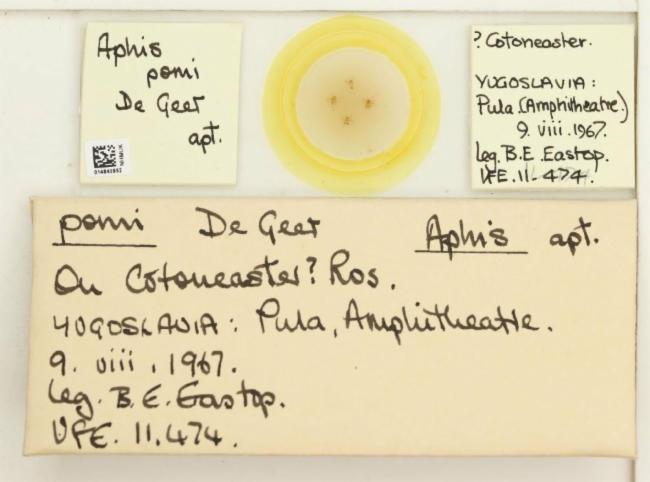 Aphis
pomi
De Geer
apt.
014842952
NHMUK
? Cotoneaster.
YUGOSLAVIA:
Pula (Amphitheatre.)
9. viii. 1967.
Leg. B.E. Eastop.
VFE. 11-474.
pomi De Geer Aphis apt.
On Cotoneaster? Ros.
YUGOSLAVIA: Pula, Amphitheatre.
9. viii. 1967.
Leg. B.E. Eastop.
VFE. 11.474.